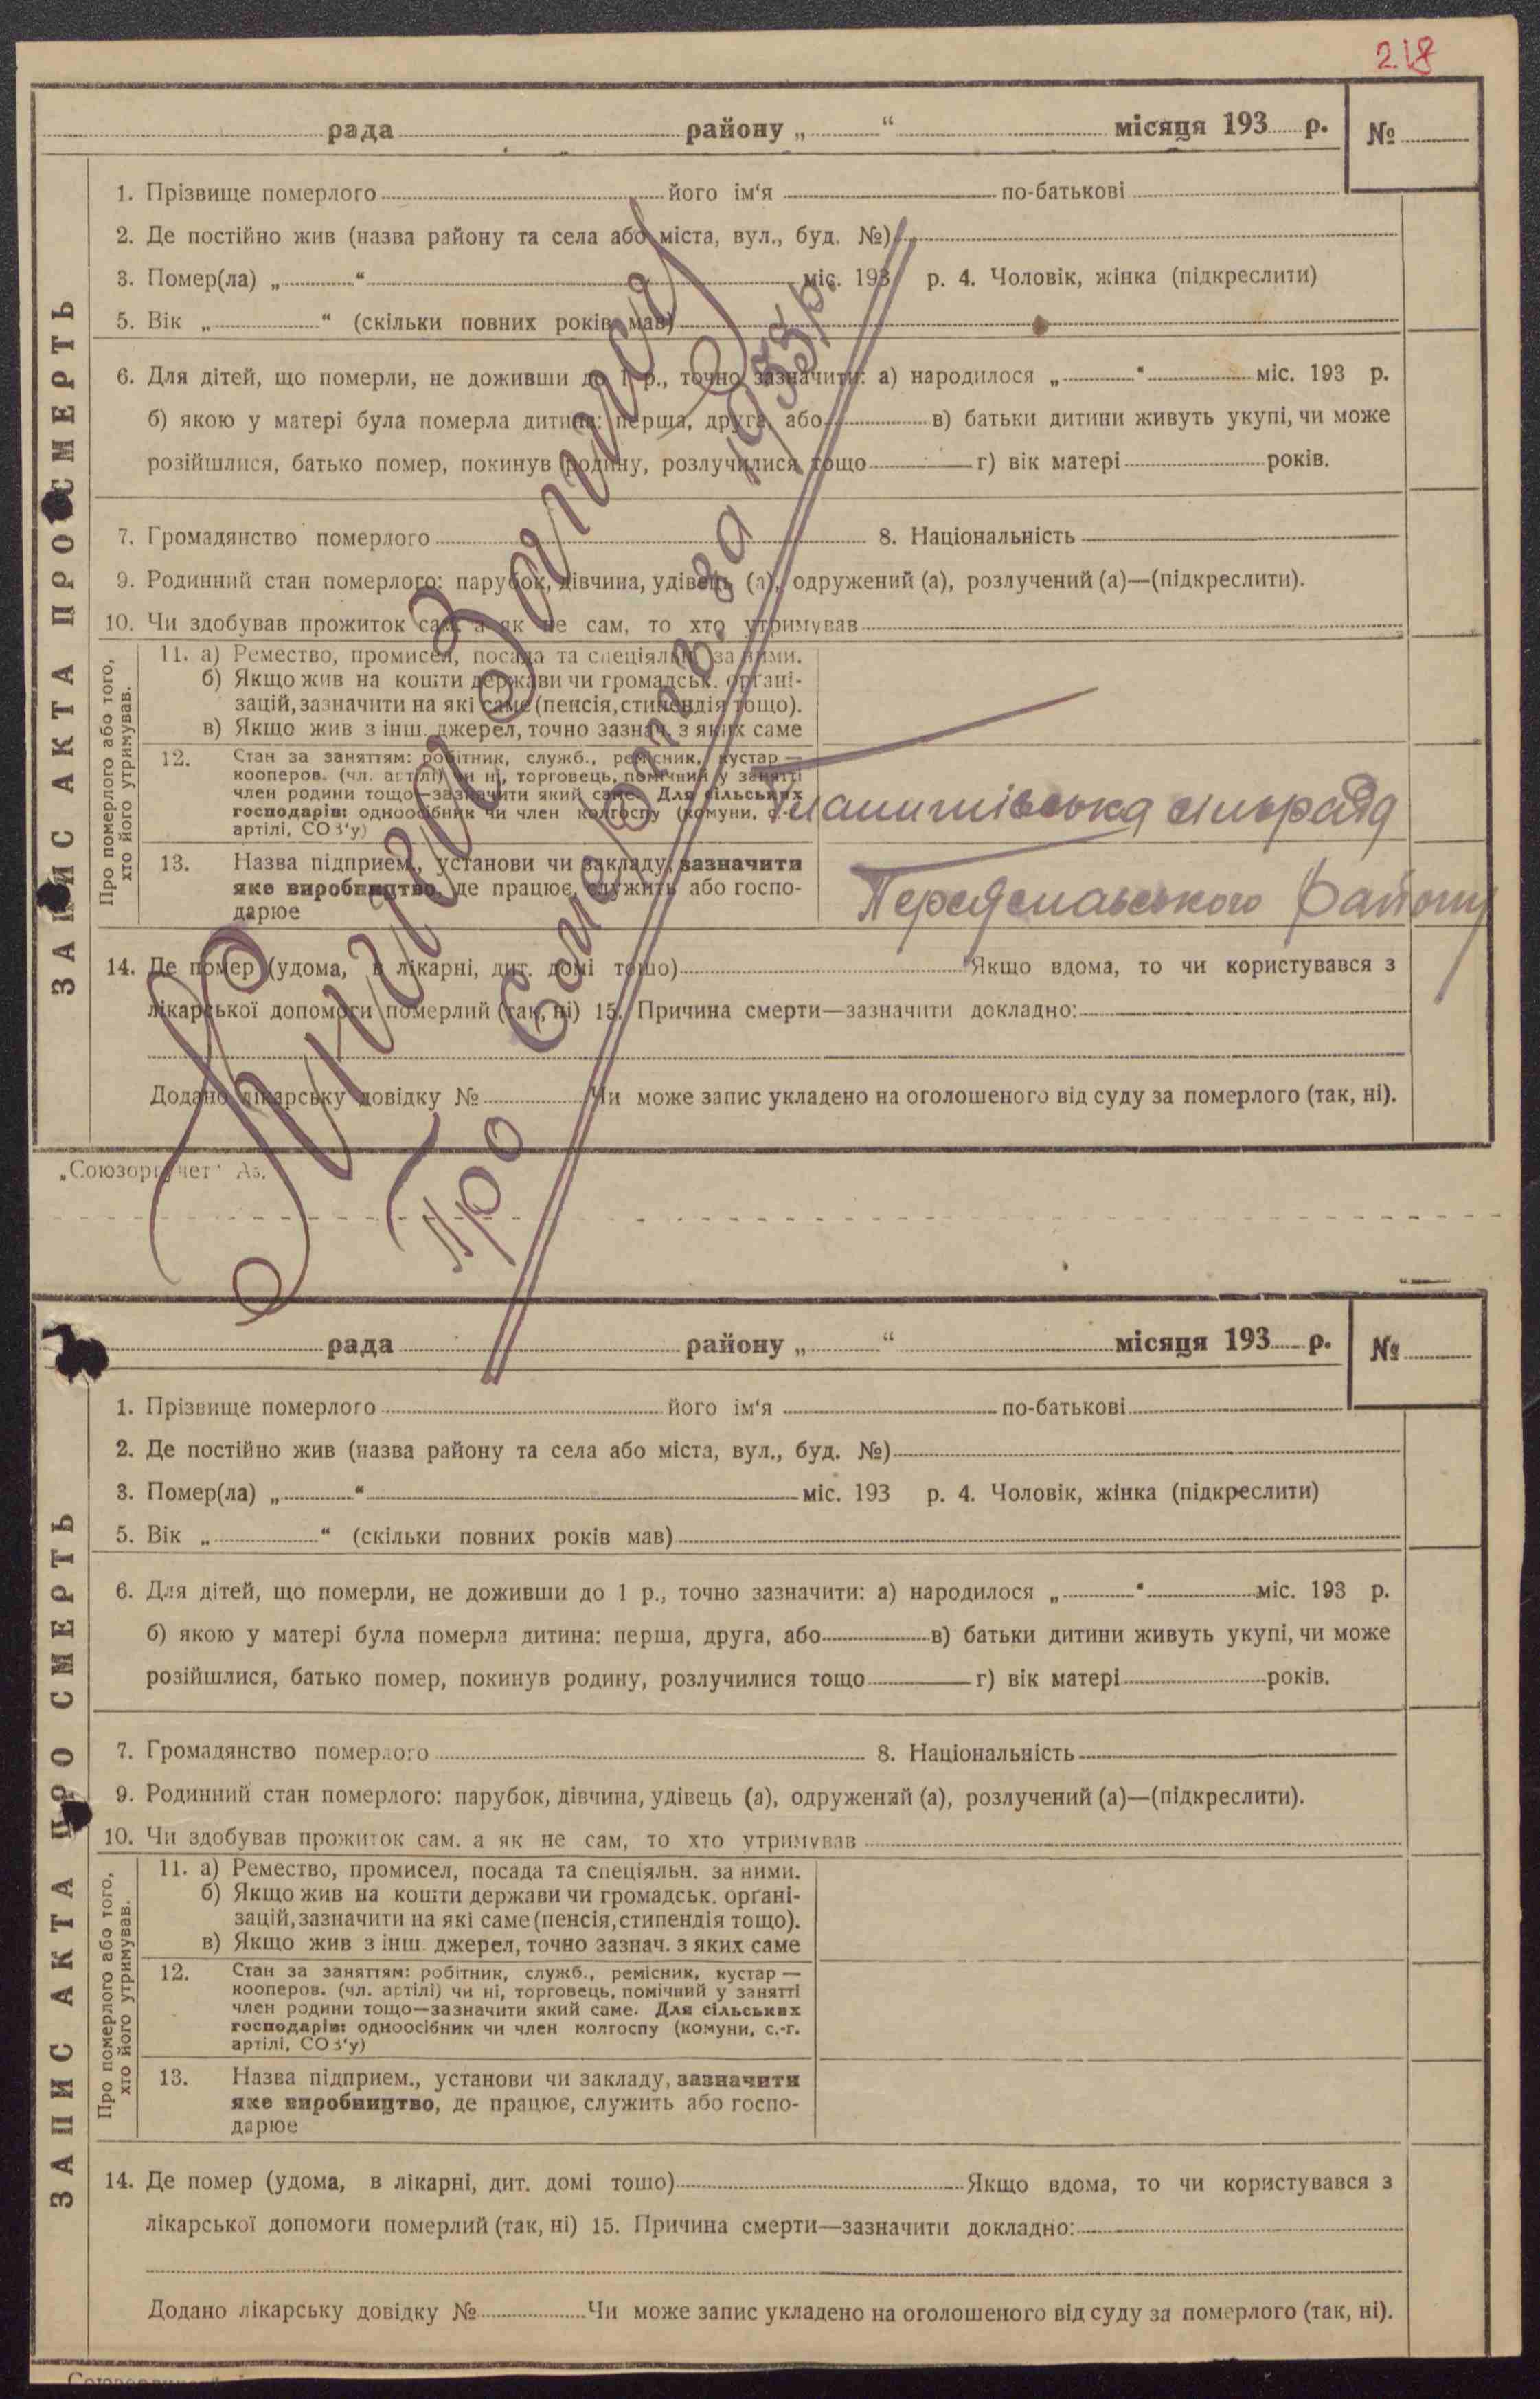 218
рада района „ “ місяця 193 р. №
ЗАПИС АКТА ПРО СМЕРТЬ
1. Прізвище померлого його ім'я по-батькові
2. Де постійно жив (назва району та села або міста, вул., буд. №)
3. Помер(ла) „ “ міс. 193 р. 4. Чоловік, жінка (підкреслити)
5. Вік „ “ (скільки повних років мав)
6. Для дітей, що померли, не доживши до 1 р., точно зазначити: а) народилося „ “ міс. 193 р.
б) якою у матері була померла дитина: перша, друга, або в) батьки дитини живуть укупі, чи може
розійшлися, батько помер, покинув родину, розлучилися тощо г) вік матері років.
7. Громадянство померлого 8. Національність
9. Родинний стан померлого: парубок, дівчина, удівець (а), одружений (а), розлучений (а)—(підкреслити).
10. Чи здобував прожиток сам, а як не сам, то хто утримував
Про померлого або того, хто його утримував.
11. а) Ремество, промисел, посада та спеціяльн. за ними.
б) Якщо жив на кошти держави чи громадськ. орґані-
зацій, зазначити на які саме (пенсія, стипендія тощо).
в) Якщо жив з інш. джерел, точно зазнач. з яких саме
12. Стан за заняттям: робітник, служб., ремісник, кустар —
кооперов. (чл. артілі) чи ні, торговець, помічний у занятті
член родини тощо—зазначити який саме. Для сільських
господарів: одноосібник чи член колгоспу (комуни, с.-г.
артілі, СОЗ'у)
13. Назва підприєм., установи чи закладу, зазначити
яке виробництво, де працює, служить або госпо-
дарює
14. Де помер (удома, в лікарні, дит. домі тощо) Якщо вдома, то чи користувався з
лікарської допомоги померлий (так, ні) 15. Причина смерти—зазначити докладно:
Додано лікарську довідку № Чи може запис укладено на оголошеного від суду за померлого (так, ні).
Книга Записів
Про Смертв за 1933 р.
сільрада
Переяславського Району
„Союзоргучет“ Аз.
рада району „ “ місяця 193 р. №
ЗАПИС АКТА ПРО СМЕРТЬ
1. Прізвище померлого його ім'я по-батькові
2. Де постійно жив (назва району та села або міста, вул., буд. №)
3. Помер(ла) „ “ міс. 193 р. 4. Чоловік, жінка (підкреслити)
5. Вік „ “ (скільки повних років мав)
6. Для дітей, що померли, не доживши до 1 р., точно зазначити: а) народилося „ “ міс. 193 р.
б) якою у матері була померла дитина: перша, друга, або в) батьки дитини живуть укупі, чи може
розійшлися, батько помер, покинув родину, розлучилися тощо г) вік матері років.
7. Громадянство померлого 8. Національність
9. Родинний стан померлого: парубок, дівчина, удівець (а), одружений (а), розлучений (а)—(підкреслити).
10. Чи здобував прожиток сам. а як не сам, то хто утримував
Про померлого або того, хто його утримував.
11. а) Ремество, промисел, посада та спеціяльн. за ними.
б) Якщо жив на кошти держави чи громадськ. орґані-
зацій, зазначити на які саме (пенсія, стипендія тощо).
в) Якщо жив з інш. джерел, точно зазнач. з яких саме
12. Стан за заняттям: робітник, служб., ремісник, кустар —
кооперов. (чл. артілі) чи ні, торговець, помічний у занятті
член родини тощо—зазначити який саме. Для сільських
господарів: одноосібник чи член колгоспу (комуни, с.-г.
артілі, СОЗ'у)
13. Назва підприєм., установи чи закладу, зазначити
яке виробництво, де працює, служить або госпо-
дарює
14. Де помер (удома, в лікарні, дит. домі тощо) Якщо вдома, то чи користувався з
лікарської допомоги померлий (так, ні) 15. Причина смерти—зазначити докладно:
Додано лікарську довідку № Чи може запис укладено на оголошеного від суду за померлого (так, ні).